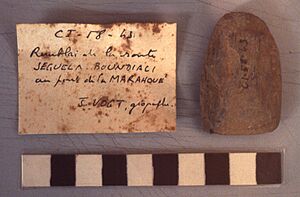 CI-18-43
Remblai de la route
SEGUELA BOUNDIALI
au pont de la MARAHOUÉ
J. VOGT, géographe.